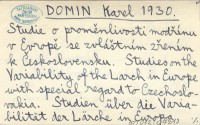 DOMIN Karel 1930.
Studie o proměnlivosti modřínu
v Evropě se zvláštním zřením
k Československu. Studies on the
Variability of the Larch in Europe
with special regard to Czechoslo-
vakia. Studien über die Varia-
bilität der Lärche in Europa